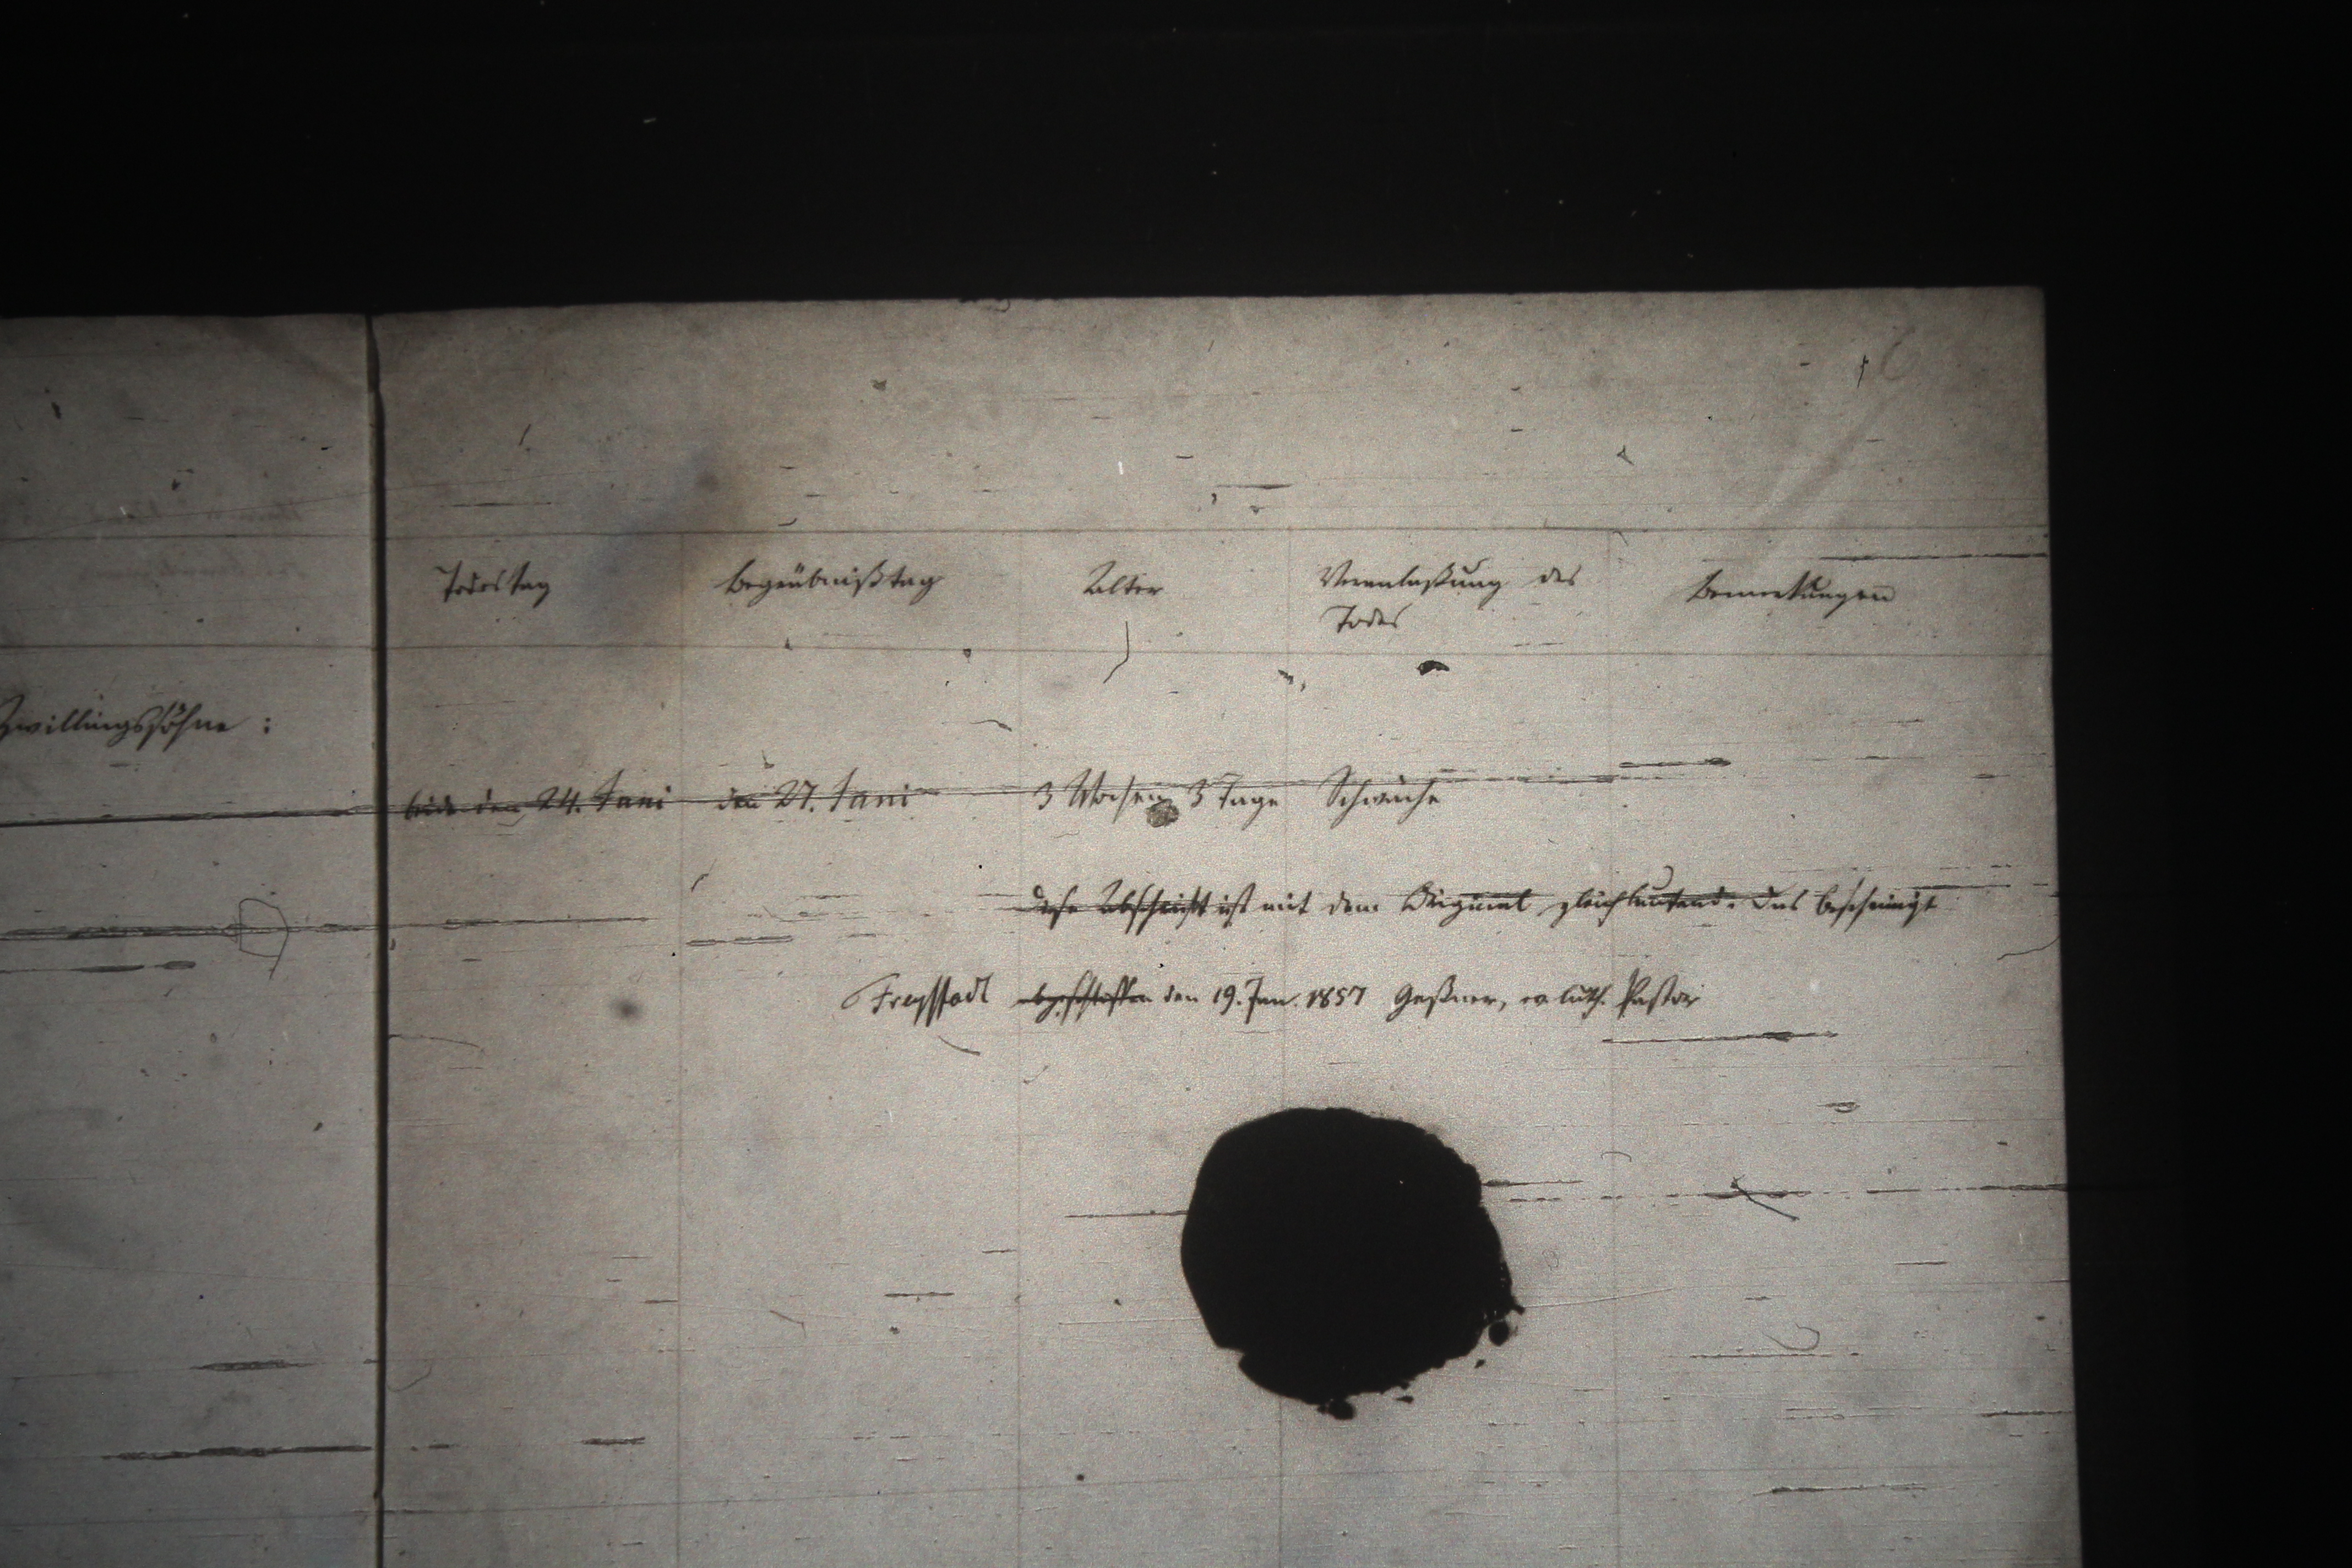 6
Todestag Begräbnißtag Alter Veranlaßung des Todes Bemerkungen
Zwillingssöhne:
beide den 24. Juni den 27. Juni 3 Wochen 3 Tage Schwäche
Diese Abschrift ist mit dem Original gleichlautend. Das bescheinigt
Freystadt abgeschlossen den 19. Jan. 1857 Geßner, ev. luth. Pastor